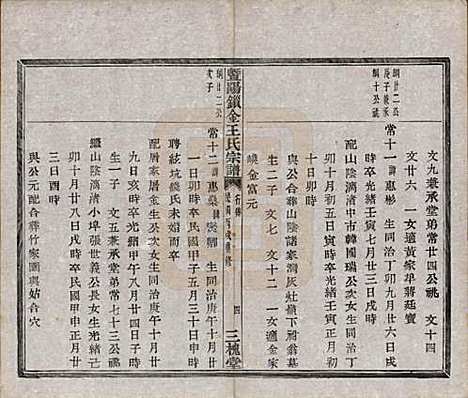 文九兼承堂弟常廿四公祧 文十四
文廿六 一女適黃家埠蔣廷寶
綱廿二公
庚子兼承
綱十公祧
常十一 諱惠彬 生同治丁卯九月廿六日戌
時卒光緒壬寅七月廿三日戌時
配山陰漓渚中市韓國瑞公次女生同治丁
卯十月初二日寅時卒光緒壬寅正月初
十日卯時
與公合葬山陰諸家灣灰灶嶺下蔣
生二子 文七 文十二 一女適金家
嶴金富元
暨陽鎖金王氏宗譜
四
三槐堂
綱廿二公
亥子
常十二 諱惠燊 生同治庚午十月廿
一日卯時卒民國甲子五月三十日卯時
聘紘坑錢氏未婚而卒
配厝家居金氏生同治庚午十二月初
九日亥時卒光緒甲午三月廿二日亥時
生一子 文五兼承堂弟常七十三公祧
繼山陰漓渚小埠張世義公長女生光緒己
卯十月廿八日戌時卒民國甲申正月廿
三日酉時
與公元配合葬竹家園與姑合穴